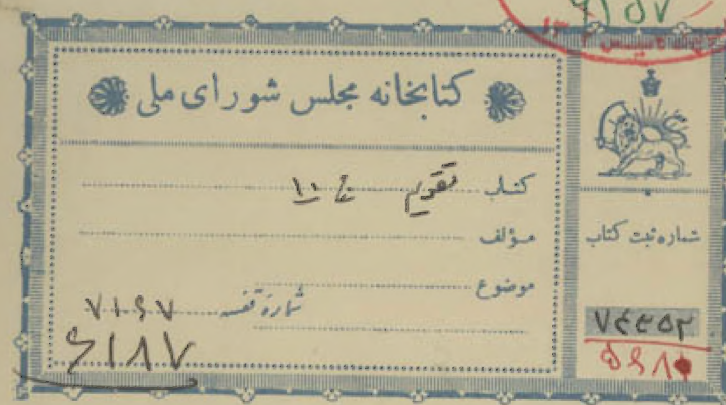 کتابخانه مجلس شورای ملی
کتاب تقویم
مؤلف
موضوع
شماره قفسه ۷۱۶۷
۶۱۸۷
شماره ثبت کتاب
۷۴۴۵۲